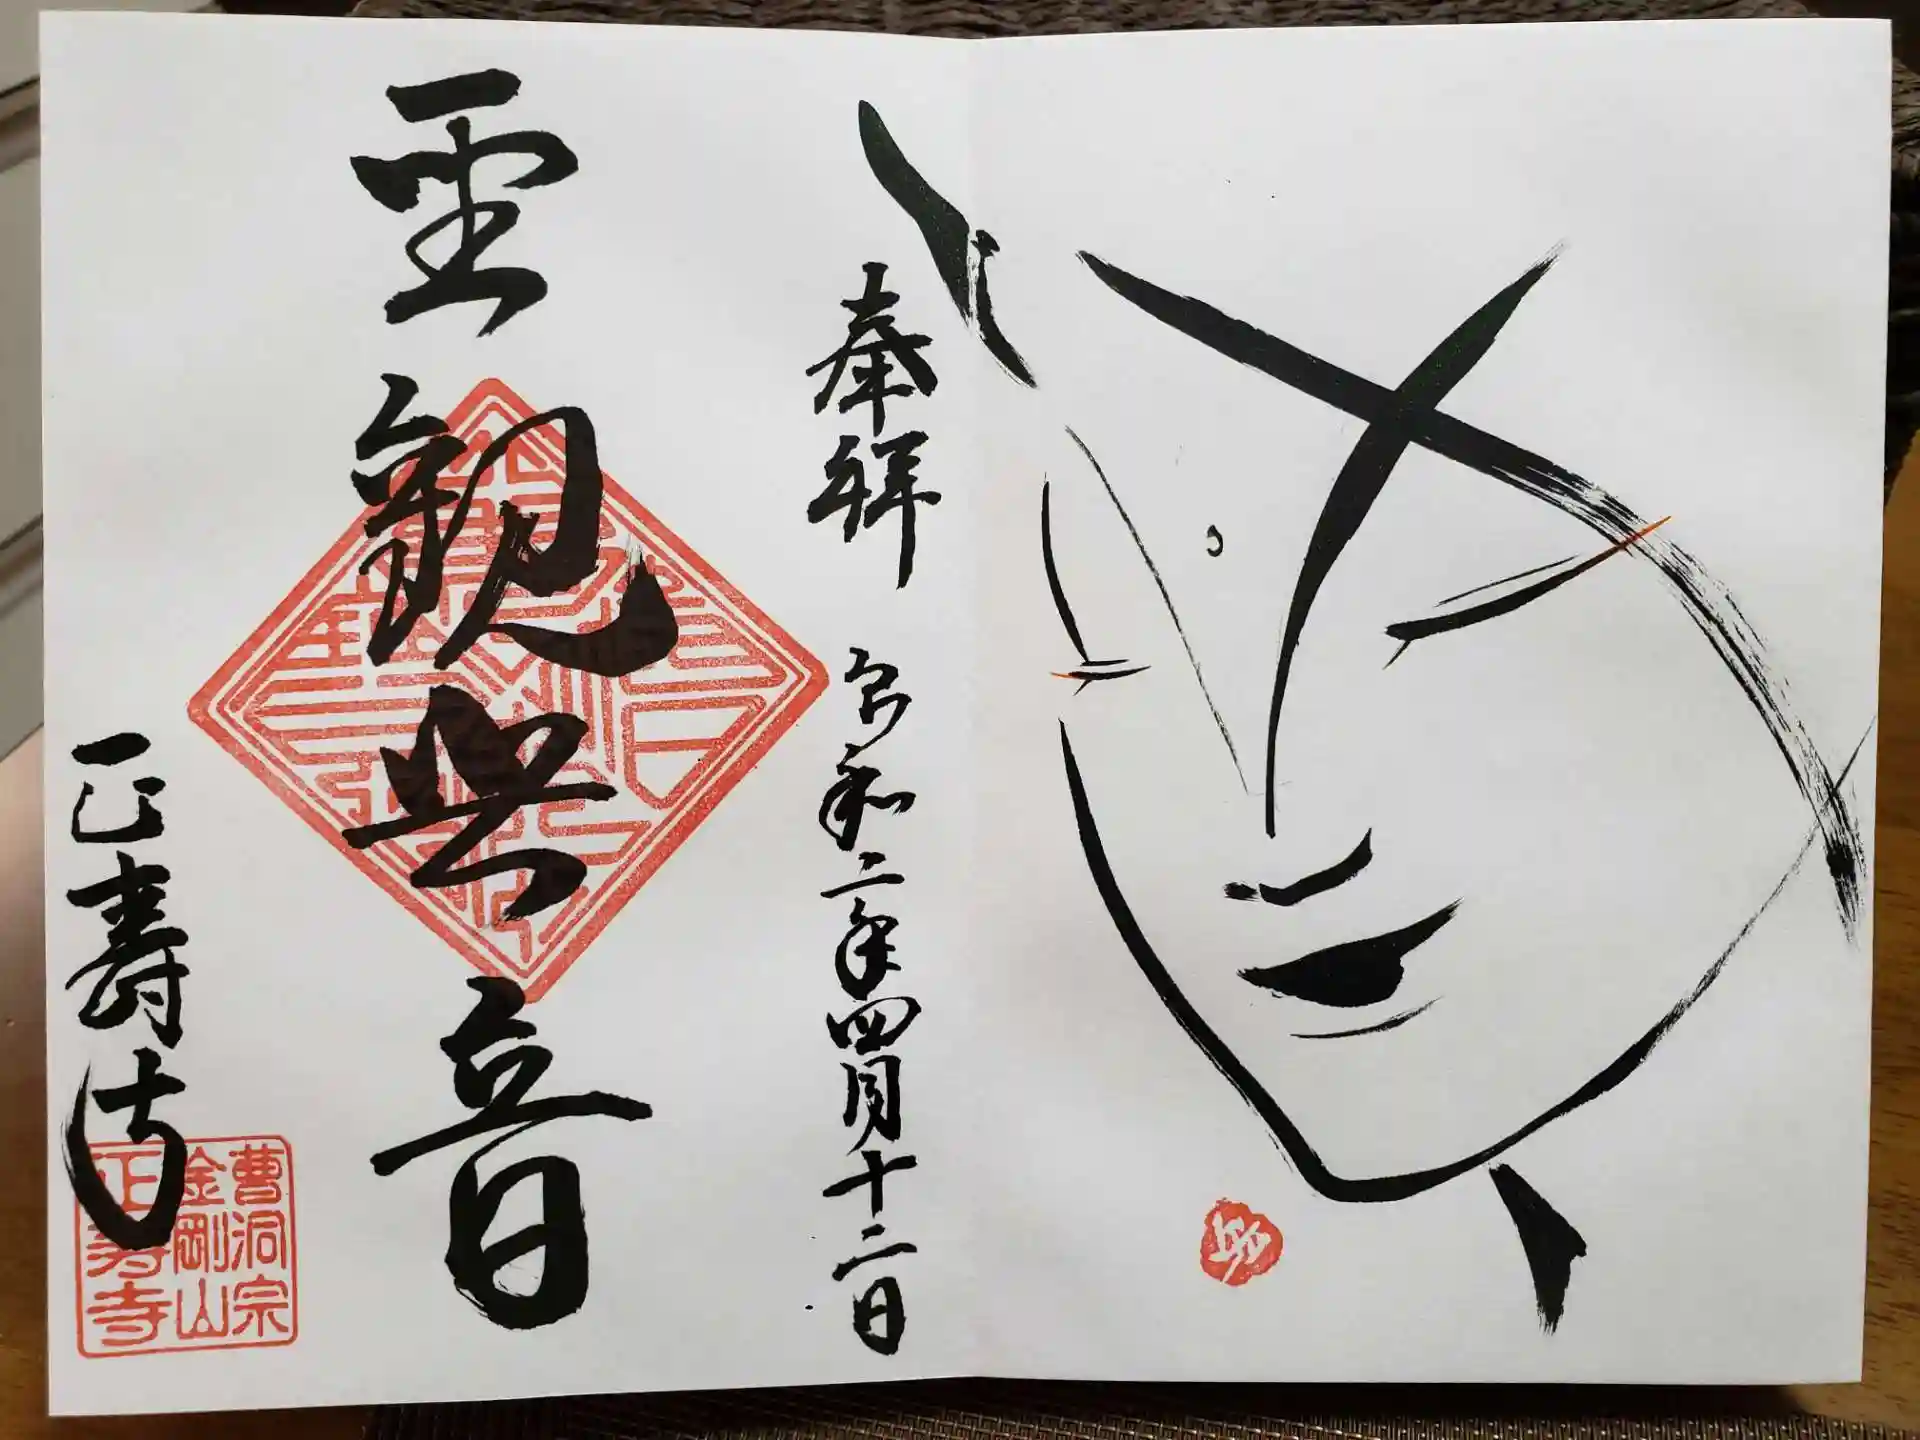 奉拝 令和二年四月十二日
聖観世音
正壽寺
曹洞宗
金剛山
正寿寺